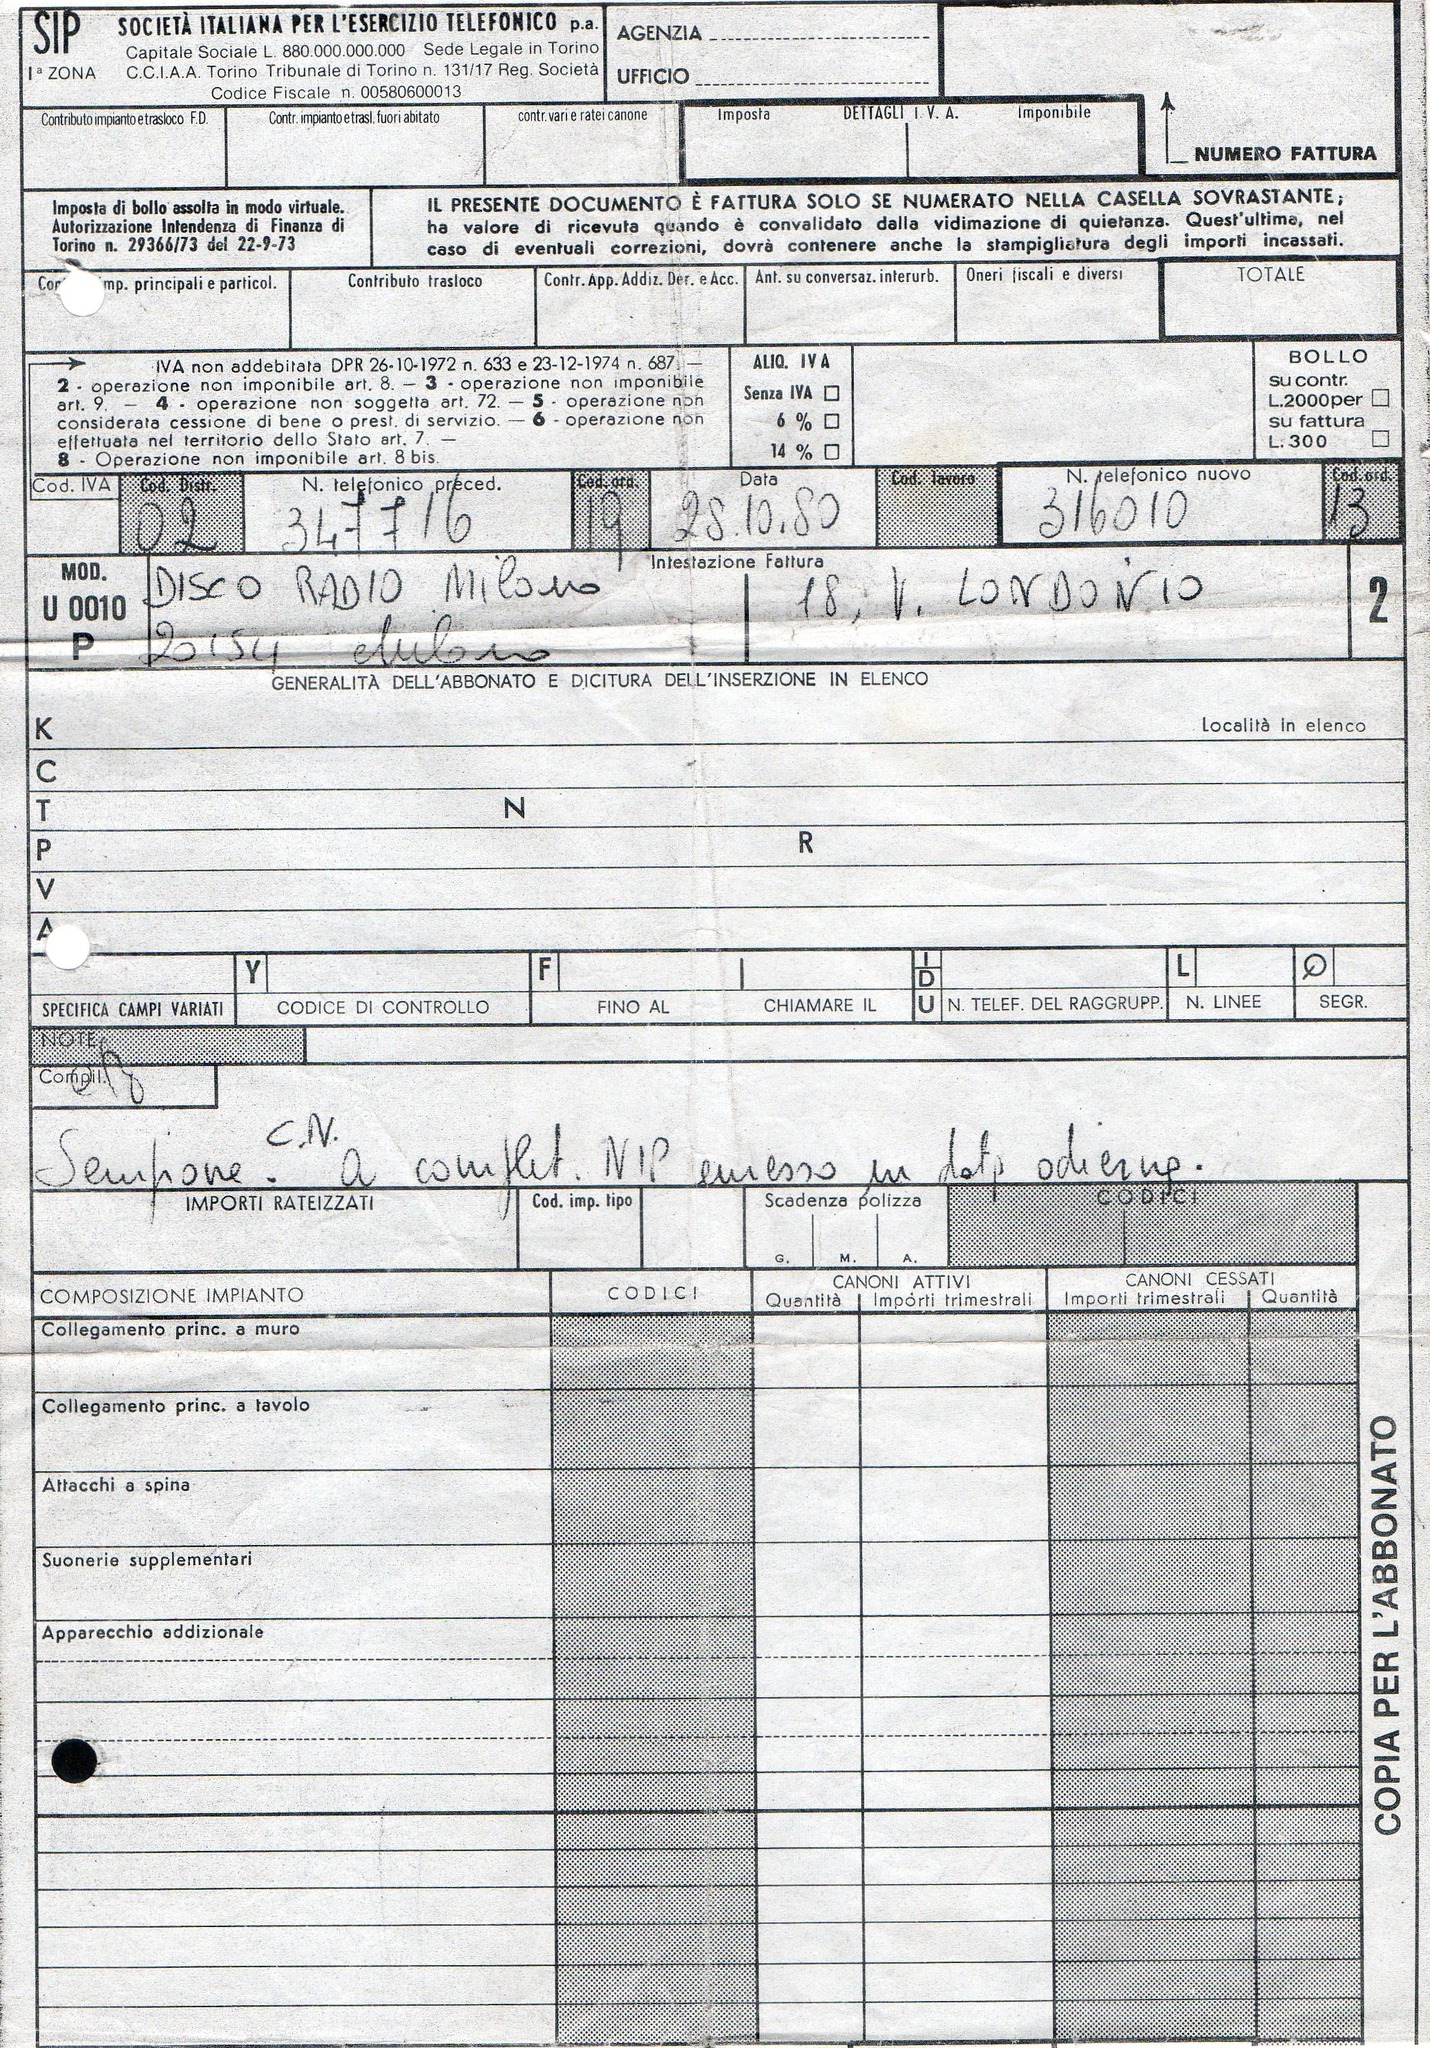 SIP SOCIETÀ ITALIANA PER L'ESERCIZIO TELEFONICO p.a.
1ª ZONA
Capitale Sociale L. 880.000.000.000 Sede Legale in Torino
C.C.I.A.A. Torino Tribunale di Torino n. 131/17 Reg. Società
Codice Fiscale n. 00580600013
AGENZIA
UFFICIO
NUMERO FATTURA
Contributo impianto e trasloco F.D.
Contr. impianto e trasl. fuori abitato
contr. vari e ratei canone
Imposta DETTAGLI I. V. A. Imponibile
Imposta di bollo assolta in modo virtuale.
Autorizzazione Intendenza di Finanza di
Torino n. 29366/73 del 22-9-73
IL PRESENTE DOCUMENTO È FATTURA SOLO SE NUMERATO NELLA CASELLA SOVRASTANTE;
ha valore di ricevuta quando è convalidato dalla vidimazione di quietanza. Quest'ultima, nel
caso di eventuali correzioni, dovrà contenere anche la stampigliatura degli importi incassati.
imp. principali e particol.
Contributo trasloco
Contr. App. Addiz. Der. e Acc.
Ant. su conversaz. interurb.
Oneri fiscali e diversi
TOTALE
IVA non addebitata DPR 26-10-1972 n. 633 e 23-12-1974 n. 687. —
2 - operazione non imponibile art. 8. — 3 - operazione non imponibile
art. 9. — 4 - operazione non soggetta art. 72. — 5 - operazione non
considerata cessione di bene o prest. di servizio. — 6 - operazione non
effettuata nel territorio dello Stato art. 7. —
8 - Operazione non imponibile art. 8 bis.
ALIQ. IVA
Senza IVA
6 %
14 %
BOLLO
su contr.
L.2000 per
su fattura
L. 300
Cod. IVA
Cod. Distr.
02
N. telefonico preced.
347716
Cod. ord.
19
Data
28.10.80
Cod. lavoro
N. telefonico nuovo
316010
Cod. ord.
13
MOD.
U 0010
P
Intestazione Fattura
DISCO RADIO Milano
18, V. LONDONIO
20154 Milano
2
GENERALITÀ DELL'ABBONATO E DICITURA DELL'INSERZIONE IN ELENCO
K
Località in elenco
C
T N
P R
V
A
Y F I I D U L Q
SPECIFICA CAMPI VARIATI
CODICE DI CONTROLLO
FINO AL
CHIAMARE IL
N. TELEF. DEL RAGGRUPP.
N. LINEE
SEGR.
NOTE
Compil.
C.N.
Sempione. A complet. NIP emesso in data odierna.
IMPORTI RATEIZZATI
Cod. imp. tipo
Scadenza polizza
G. M. A.
CODICI
COMPOSIZIONE IMPIANTO
CODICI
CANONI ATTIVI
Quantità Importi trimestrali
CANONI CESSATI
Importi trimestrali Quantità
Collegamento princ. a muro
Collegamento princ. a tavolo
Attacchi a spina
Suonerie supplementari
Apparecchio addizionale
COPIA PER L'ABBONATO